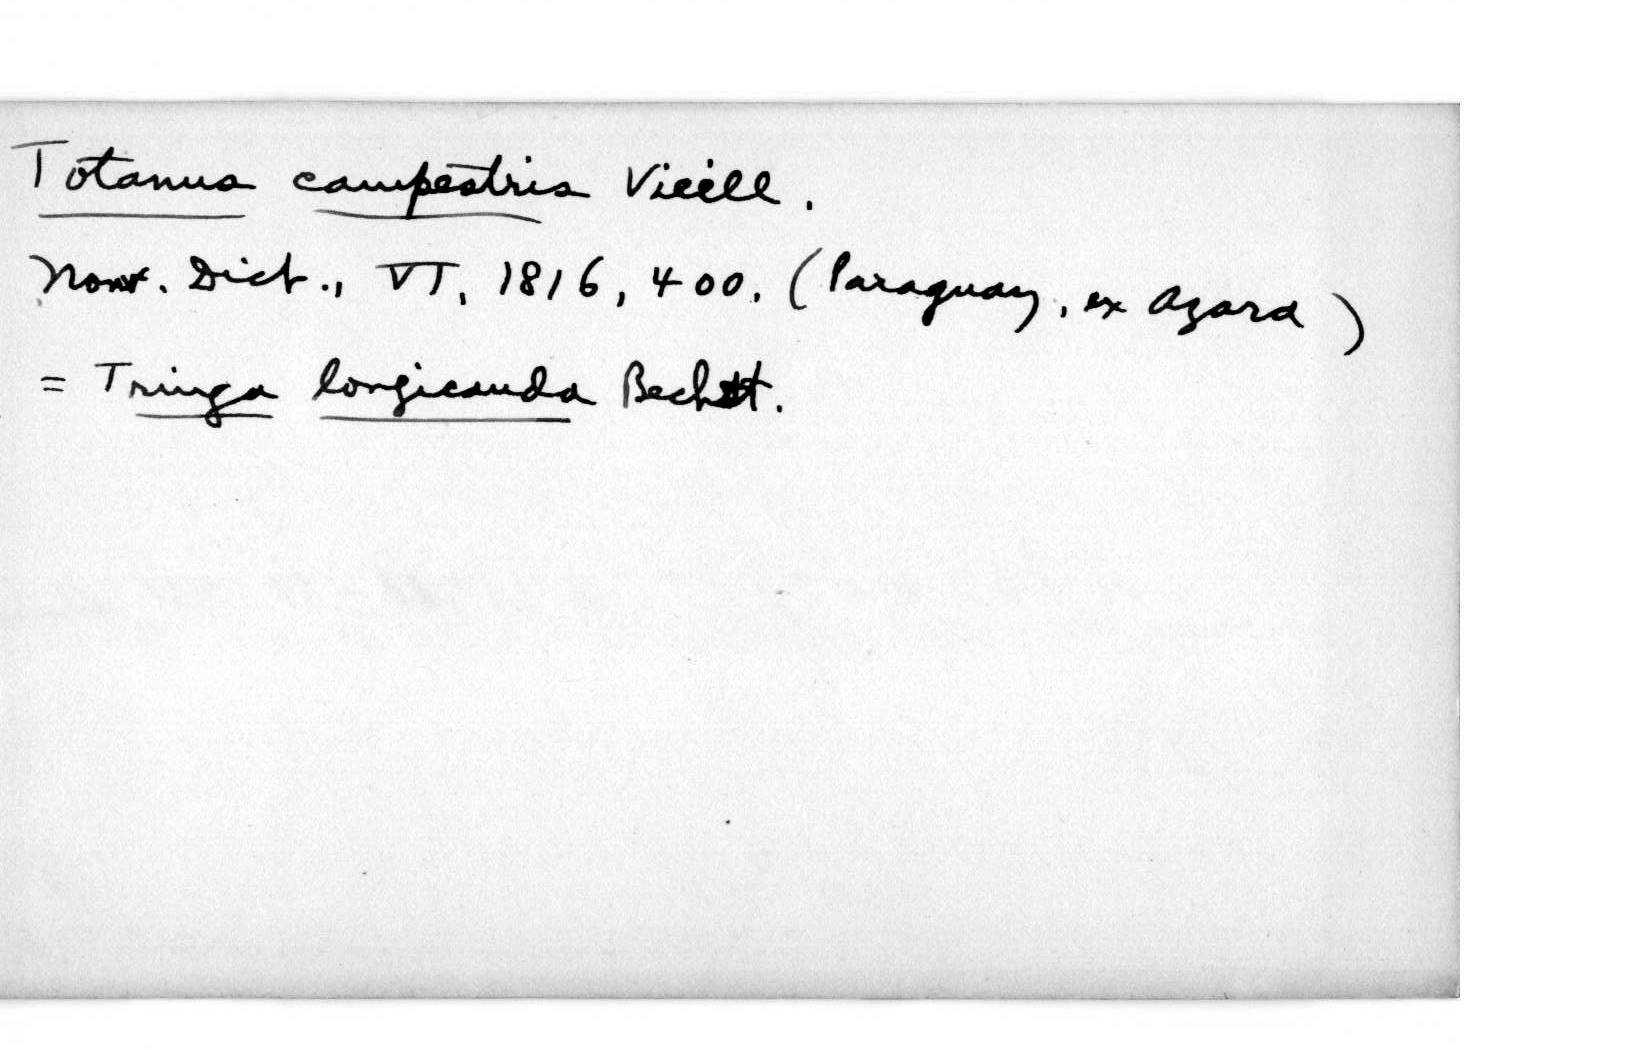 Totanus campestris Vieill.
Nouv. Dict., VI, 1816, 400. (Paraguay, ex Azara)
= Tringa longicauda Bechst.